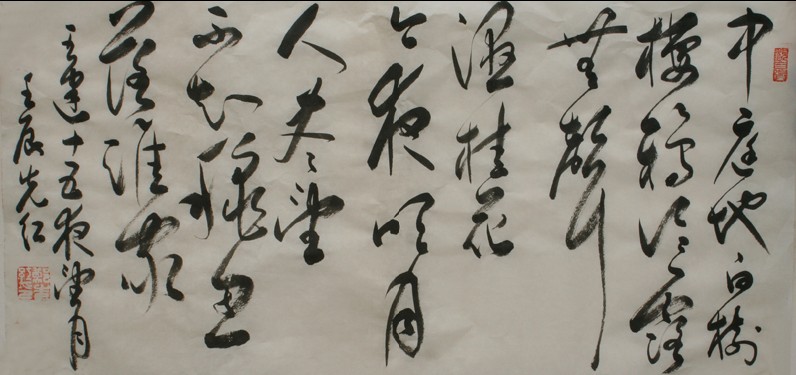 中庭地白樹
棲鴉冷露
無聲
濕桂花
今夜明月
人尽望
不知秋思
落誰家
王建十五夜望月
壬辰先红